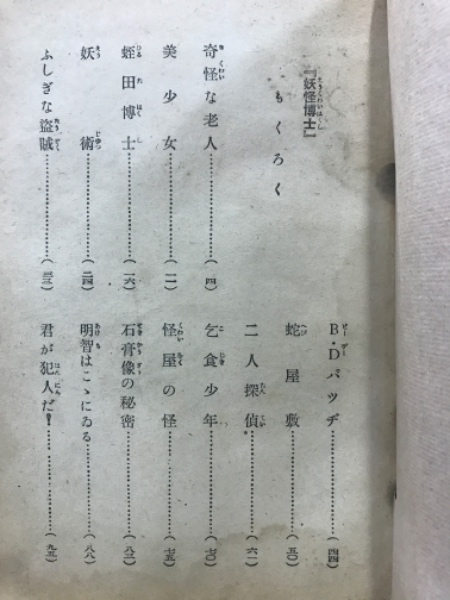 『妖怪博士』
もくろく
奇怪な老人……………(四)
美少女……………(一一)
蛭田博士……………(一六)
妖術……………(二四)
ふしぎな盗賊……………(三三)
B・Dバッヂ……………(四四)
蛇屋敷……………(五〇)
二人探偵……………(六一)
乞食少年……………(七〇)
怪屋の怪……………(七五)
石膏像の秘密……………(八三)
明智はこゝにゐる……………(八八)
君が犯人だ！……………(九五)